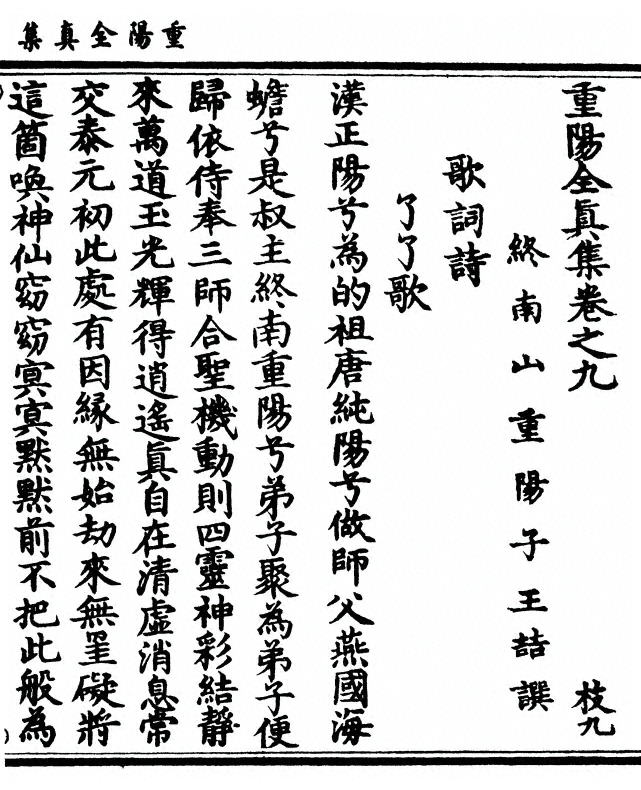 重陽全真集
重陽全眞集卷之九 枝九
終南山重陽子王喆譔
歌詞詩
了了歌
漢正陽兮為的祖唐純陽兮做師父燕國海
蟾兮是叔主終南重陽兮弟子聚為弟子便
歸依侍奉三師合聖機動則四靈神彩結靜
來萬道玉光輝得逍遙眞自在清虛消息常
交泰元初此處有因緣無始劫來無罣礙將
這箇喚神仙窈窈冥冥默默前不把此般為